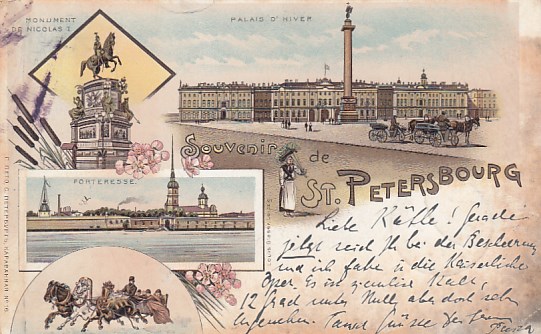 MONUMENT
DE NICOLAS I.
PALAIS D'HIVER
Souvenir
de
ST. PETERSBOURG
FORTERESSE.
Liebe Käthe! Gerade
jetzt seid Ihr bei der Bescherung
und ich fahre in die Kaiserliche
Oper. Es ist
12 Grad unter Null, aber doch sehr
angenehm. Tausend Grüsse